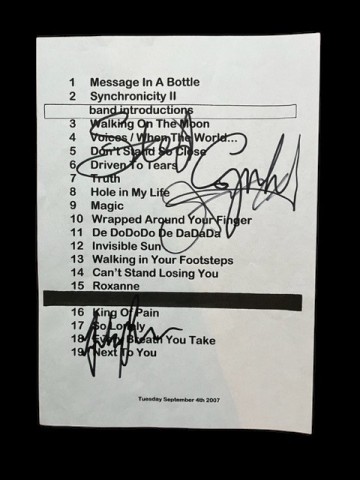 1 Message In A Bottle
2 Synchronicity II
band introductions
3 Walking On The Moon
4 Voices / When The World...
5 Don't Stand So Close
6 Driven To Tears
7 Truth
8 Hole in My Life
9 Magic
10 Wrapped Around Your Finger
11 De DoDoDo De DaDaDa
12 Invisible Sun
13 Walking in Your Footsteps
14 Can't Stand Losing You
15 Roxanne
16 King Of Pain
17 So Lonely
18 Every Breath You Take
19 Next To You
Tuesday September 4th 2007